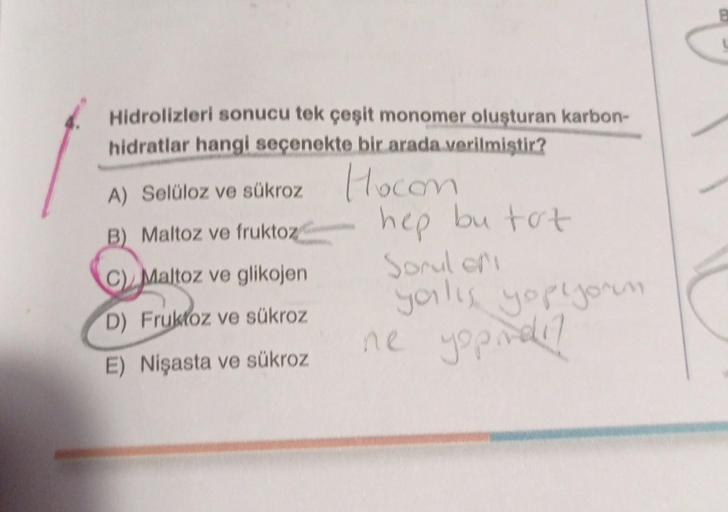 4. Hidrolizleri sonucu tek çeşit monomer oluşturan karbon-
hidratlar hangi seçenekte bir arada verilmiştir?
A) Selüloz ve sükroz
B) Maltoz ve fruktoz
C) Maltoz ve glikojen
D) Fruktoz ve sükroz
E) Nişasta ve sükroz
Hocam
hep bu tat
soruları
yalış yapıyorum
ne